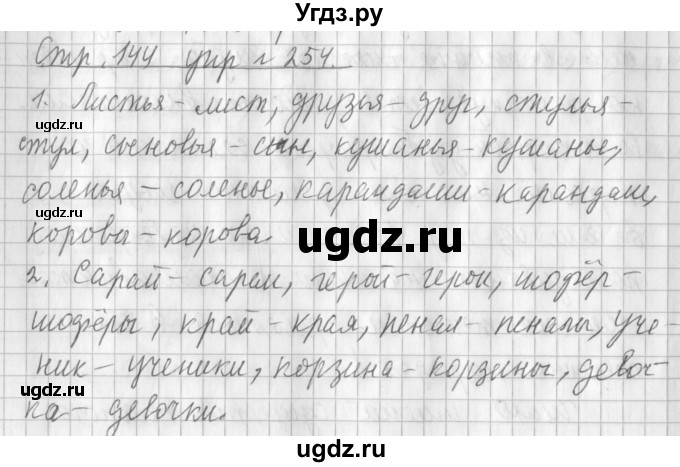 Угдз.ру
Стр. 144 упр № 254.
1. Листья - лист, друзья - друг, стулья -
стул, сыновья - сын, кушанья - кушанье,
соленья - соленье, карандаши - карандаш,
коровы - корова.
2. Сарай - сараи, герой - герои, шофёр -
шофёры, край - края, пенал - пеналы, уче-
ник - ученики, корзина - корзины, девоч-
ка - девочки.
ugdz.ru
ugdz.ru
ugdz.ru
ugdz.ru
ugdz.ru
ugdz.ru
ugdz.ru